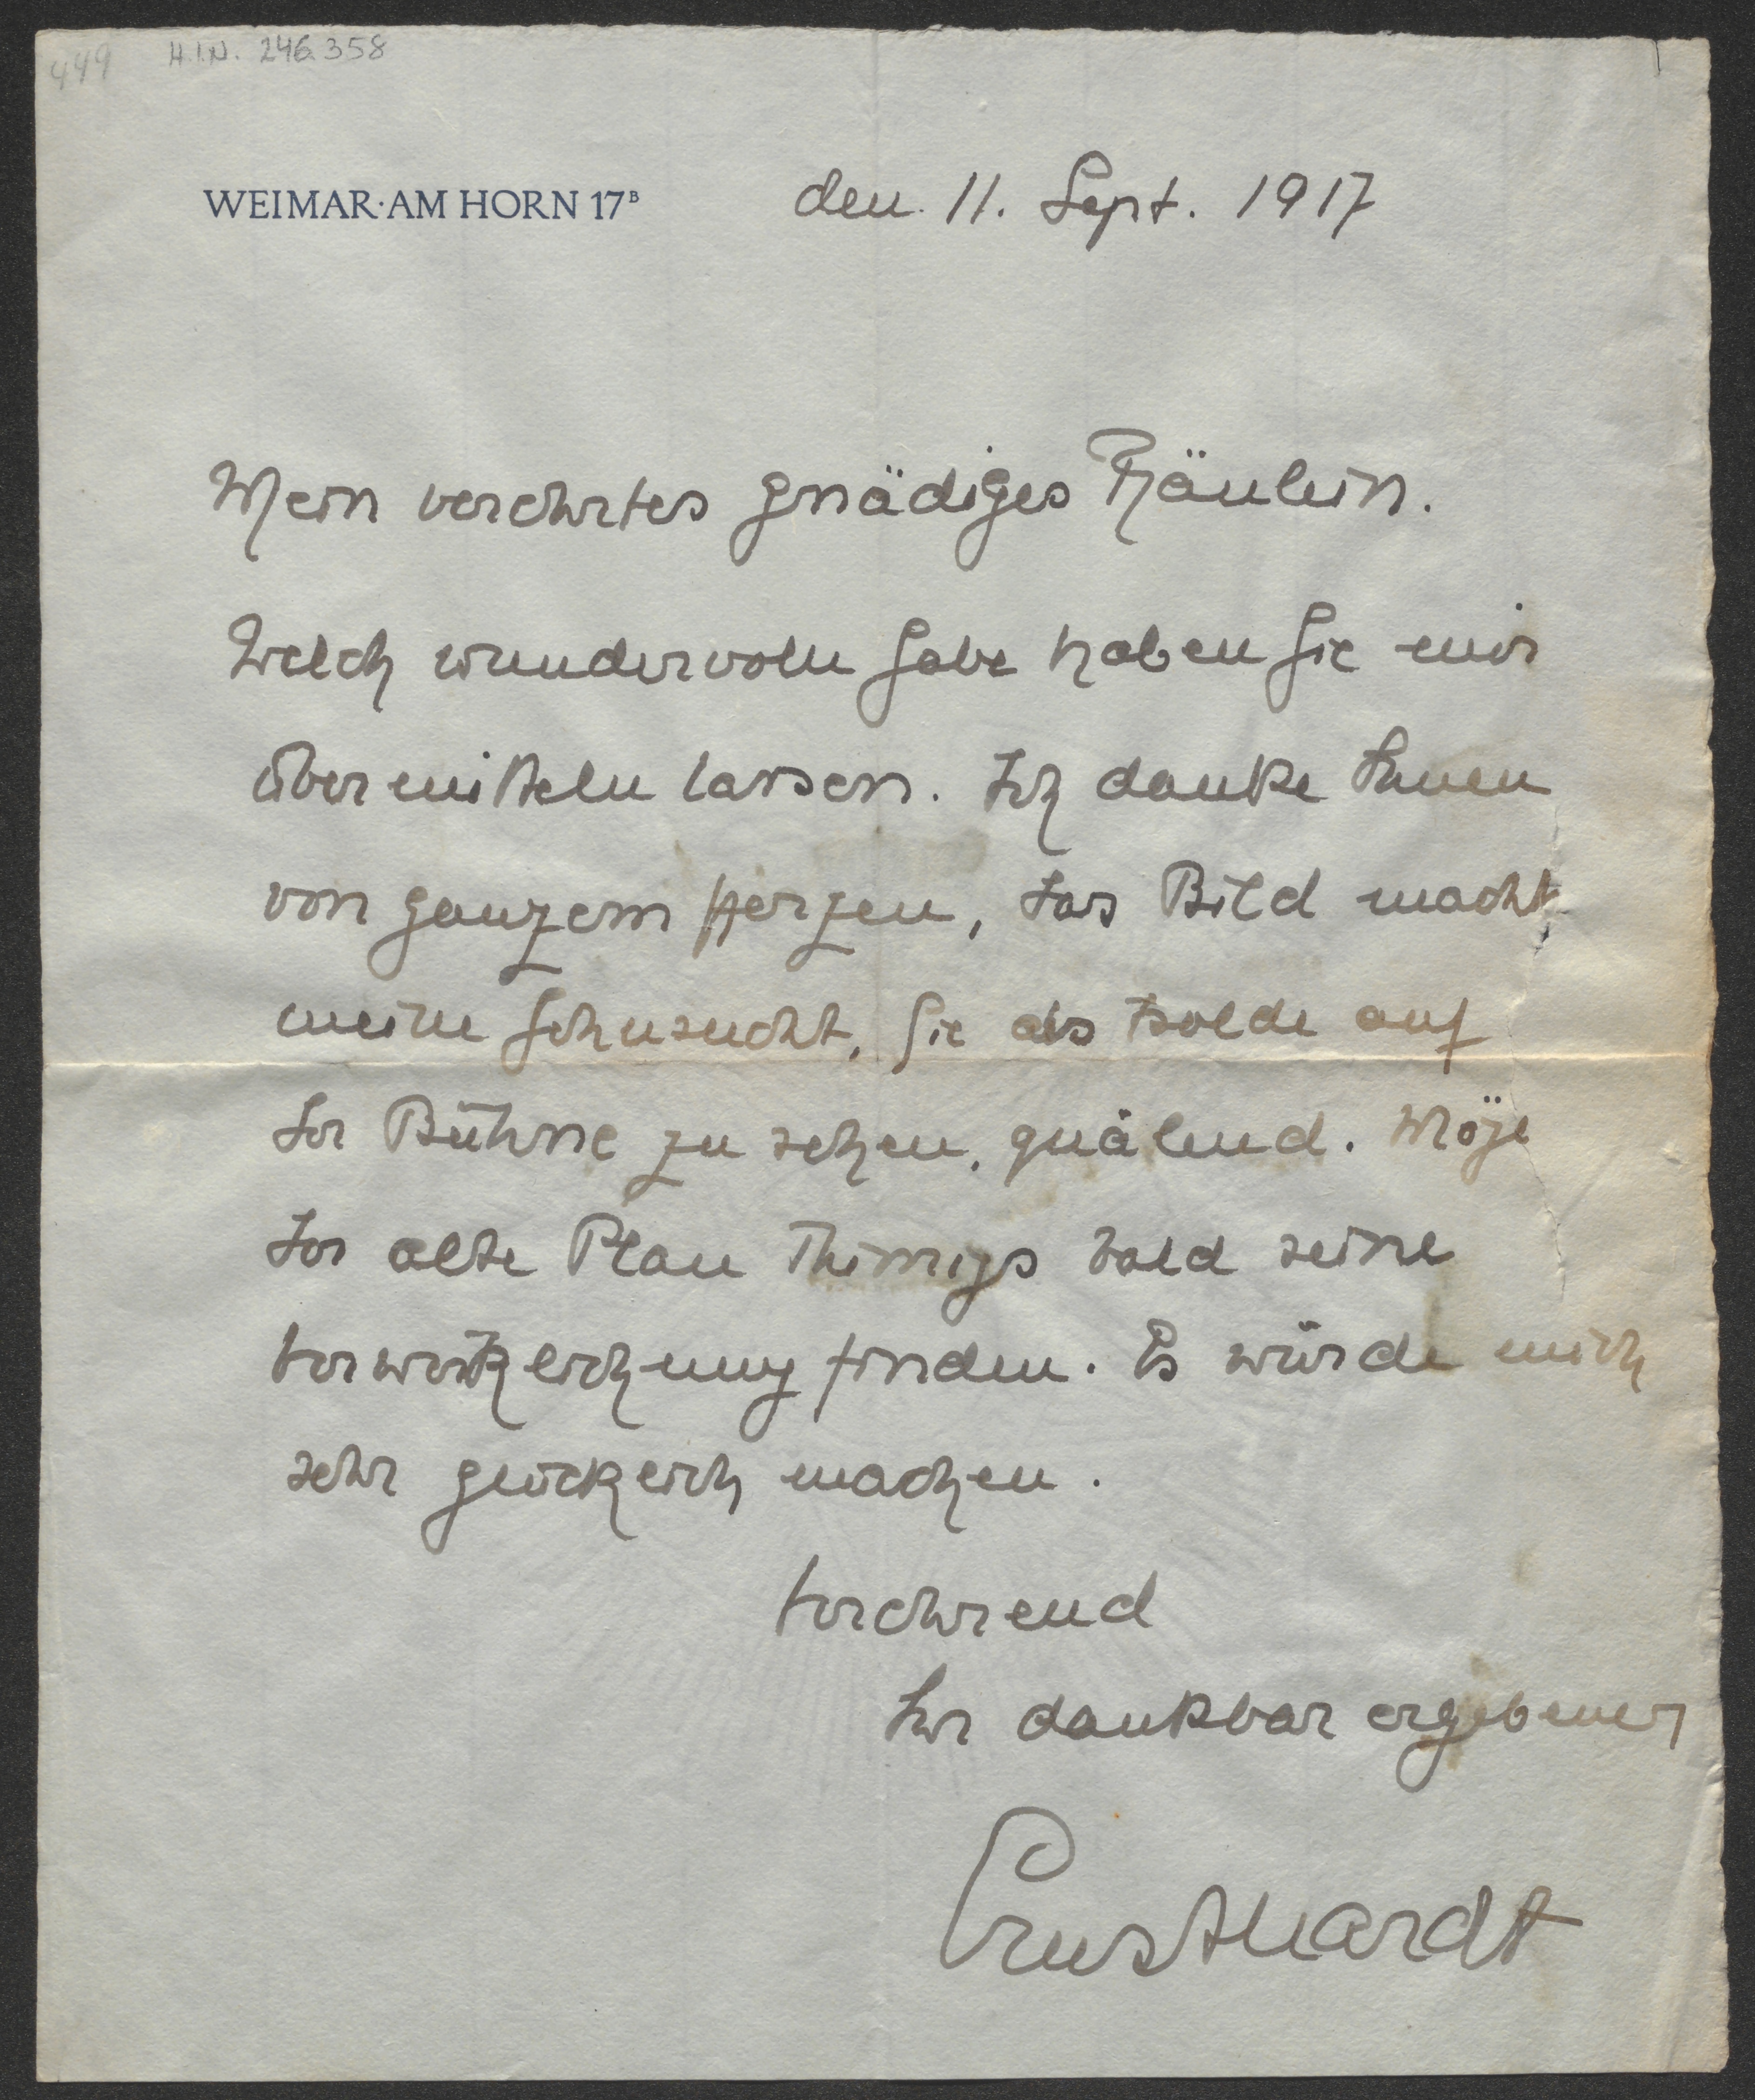 449 H.I.N. 246.358
WEIMAR·AM HORN 17ᴮ den 11. Sept. 1917
Mein verehrtes gnädiges Fräulein.
Welch wundervolle Gabe haben Sie mir
übermitteln lassen. Ich danke Ihnen
von ganzem Herzen, das Bild macht
meine Sehnsucht, Sie als Isolde auf
der Bühne zu sehen, quälend. Möge
der alte Plan Thimigs bald seine
Verwirklichung finden. Es würde mich
sehr glücklich machen.
Verehrend
Ihr dankbar ergebener
Ernst Hardt